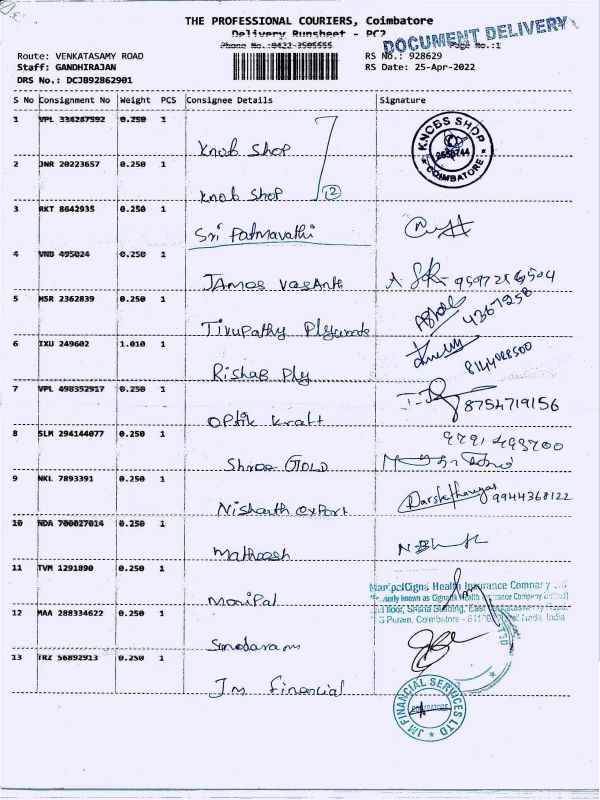 THE PROFESSIONAL COURIERS, Coimbatore
Delivery Runsheet - PC2
Phone No.:0422-3505555
Page No.:1
DOCUMENT DELIVERY
Route: VENKATASAMY ROAD
RS No.: 928629
Staff: GANDHIRAJAN
RS Date: 25-Apr-2022
DRS No.: DCJB92862901
S No Consignment No Weight PCS Consignee Details Signature
1 VPL 334247592 0.250 1 Knob Shop
KNOBS SHOP COIMBATORE
2 JNR 20223657 0.250 1 Knob Shop 2
3 RKT 8642935 0.250 1 Sri Patmavathi
4 VNB 495024 0.250 1 James Vasanth
5 MSR 2362839 0.250 1 Tirupathy Plywoods
4367258
6 IXU 249602 1.010 1 Rishab Ply
8144088500
7 VPL 498352917 0.250 1 Optik Kraft
8754719156
8 SLM 294144077 0.250 1 Shree Gold
9791493700
9 NKL 7893391 0.250 1 Nishanth export
9944368122
10 NDA 700027014 0.250 1
11 TVM 1291890 0.250 1 Manipal
ManipalCigna Health Insurance Company
12 MAA 288334622 0.250 1 Sundaram
13 TRZ 56892913 0.250 1 Jm Financial
JM FINANCIAL SERVICES LTD COIMBATORE